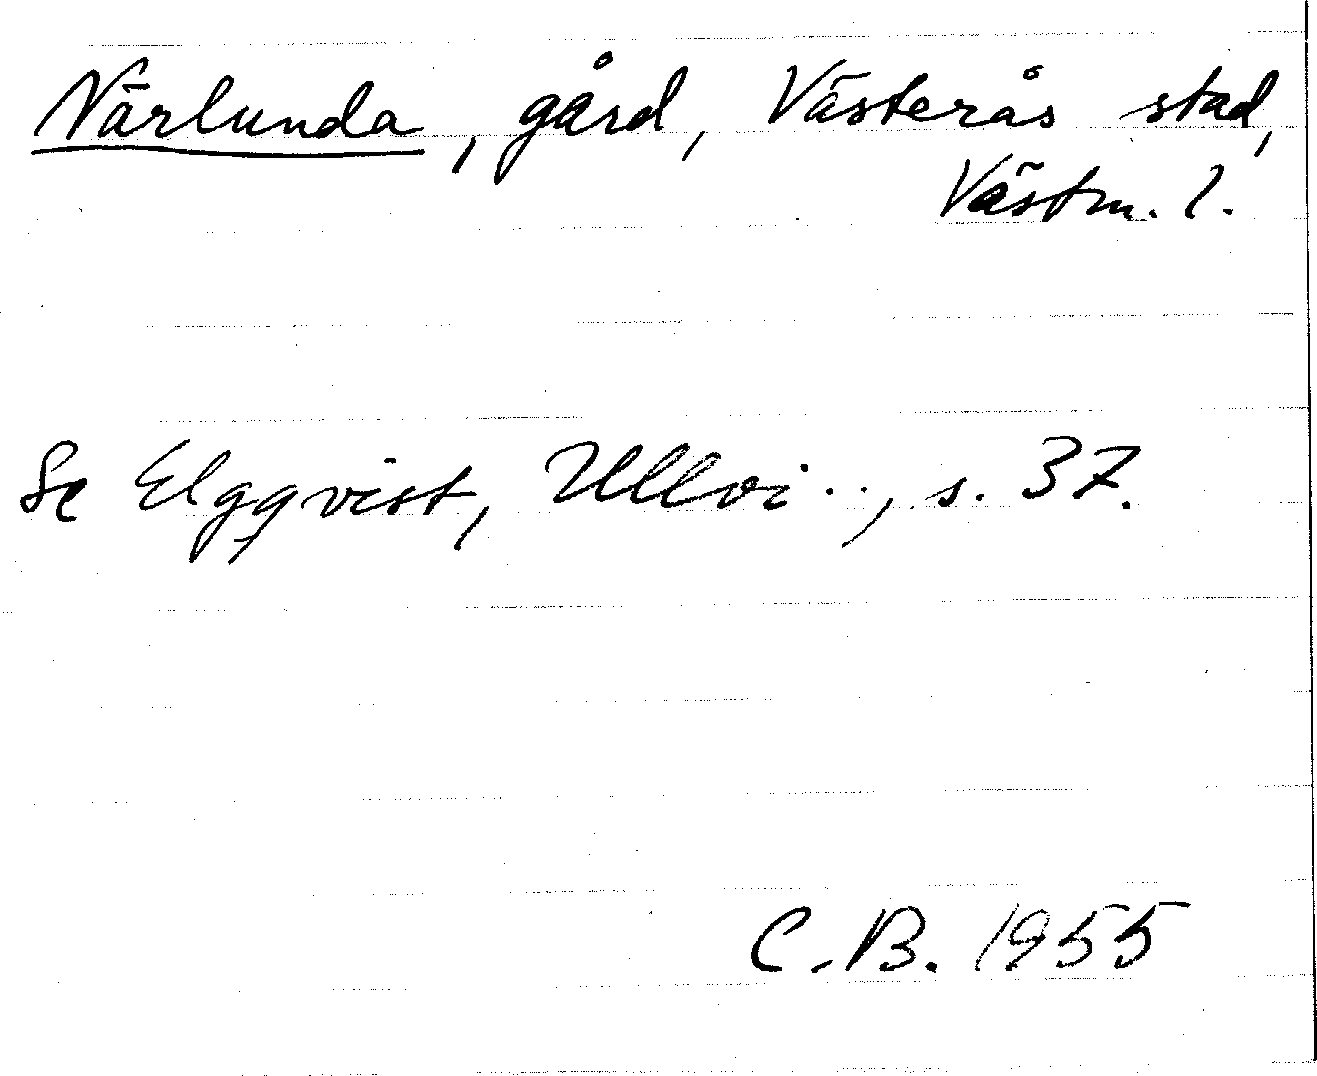 Närlunda, gård, Västerås stad,
Västm. l.
Se Elgqvist, Ullvi..., s. 37.
C.B. 1955